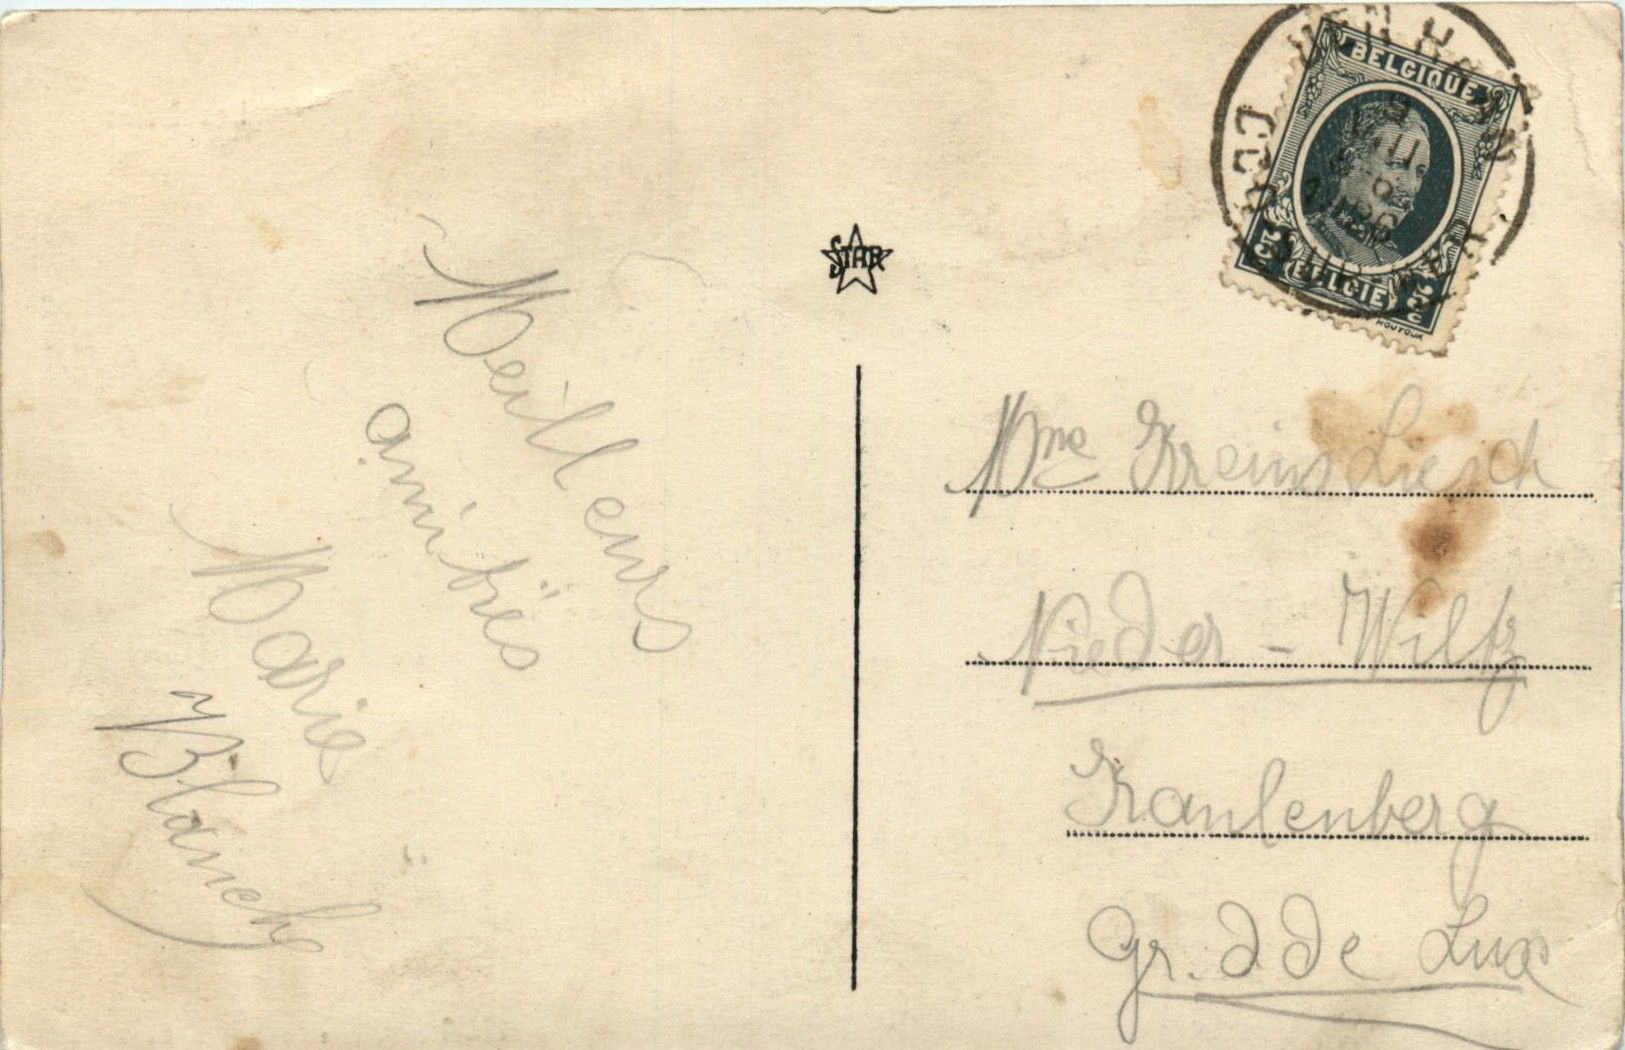 Meilleurs
amitiés
Marie
Blanch
STAR
BELGIQUE
BELGIE
HOUYOUX
Mme Kreins Liesch
Nieder - Wiltz
Kaulenberg
Gr. d de Lux